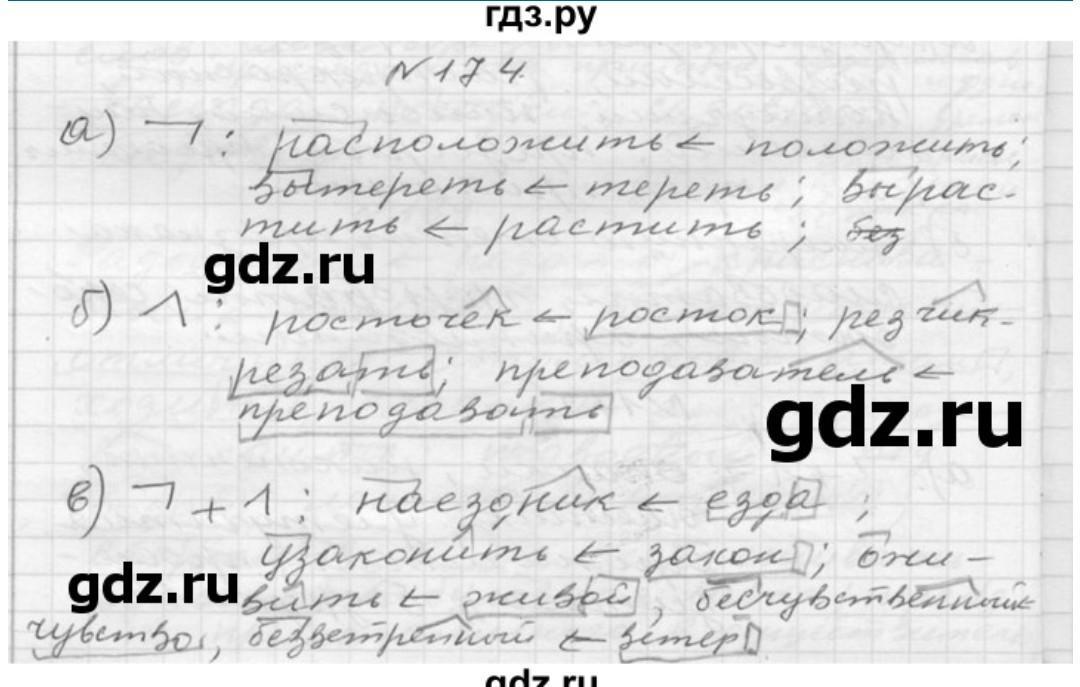 гдз.ру
№174.
а) ¬ : расположить ← положить;
вытереть ← тереть; вырас-
тить ← растить; без
gdz.ru
б) ^ : росточек ← росток; резчик-
резать; преподаватель ←
gdz.ru
преподавать
в) ¬ + ^ : наездник ← езда;
узаконить ← закон; ожи-
gdz.ru
вить ← живой, бесчувственный ←
чувство, безветренный ← ветер
gdz.ru